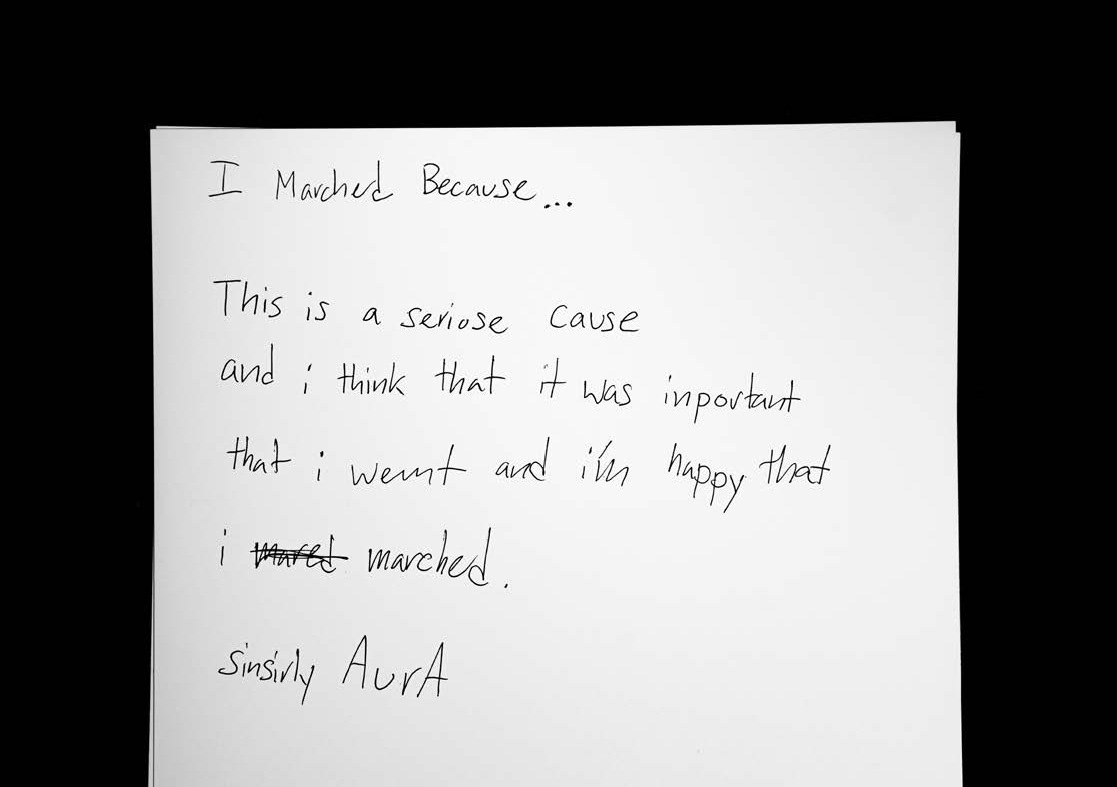 I Marched Because...
This is a seriose cause
and i think that it was inportant
that i wemt and i'm happy that
i mared marched.
sinsirly AurA